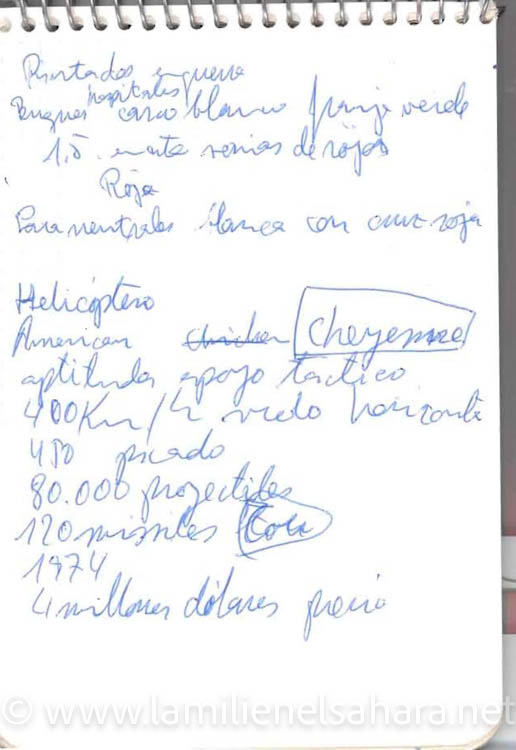 Pintados en guerra
hospitales
Buques casco blanco franja verde
1,5
Roja
Para neutrales blanca con cruz roja
Helicóptero
American Cheyenne
aptitudes apoyo tactico
400 Km/h vuelo horizonta
450 picado
80.000 proyectiles
120 missiles
1974
4 millones dólares precio
© www.lamilienelsahara.net